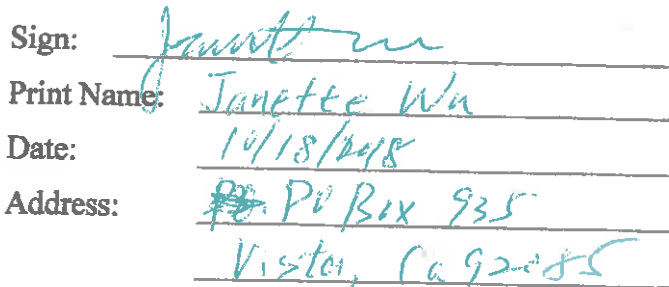 Sign:
Print Name: Janette Wu
Date: 10/18/2018
Address: PO Box 935
Vista, Ca 92085